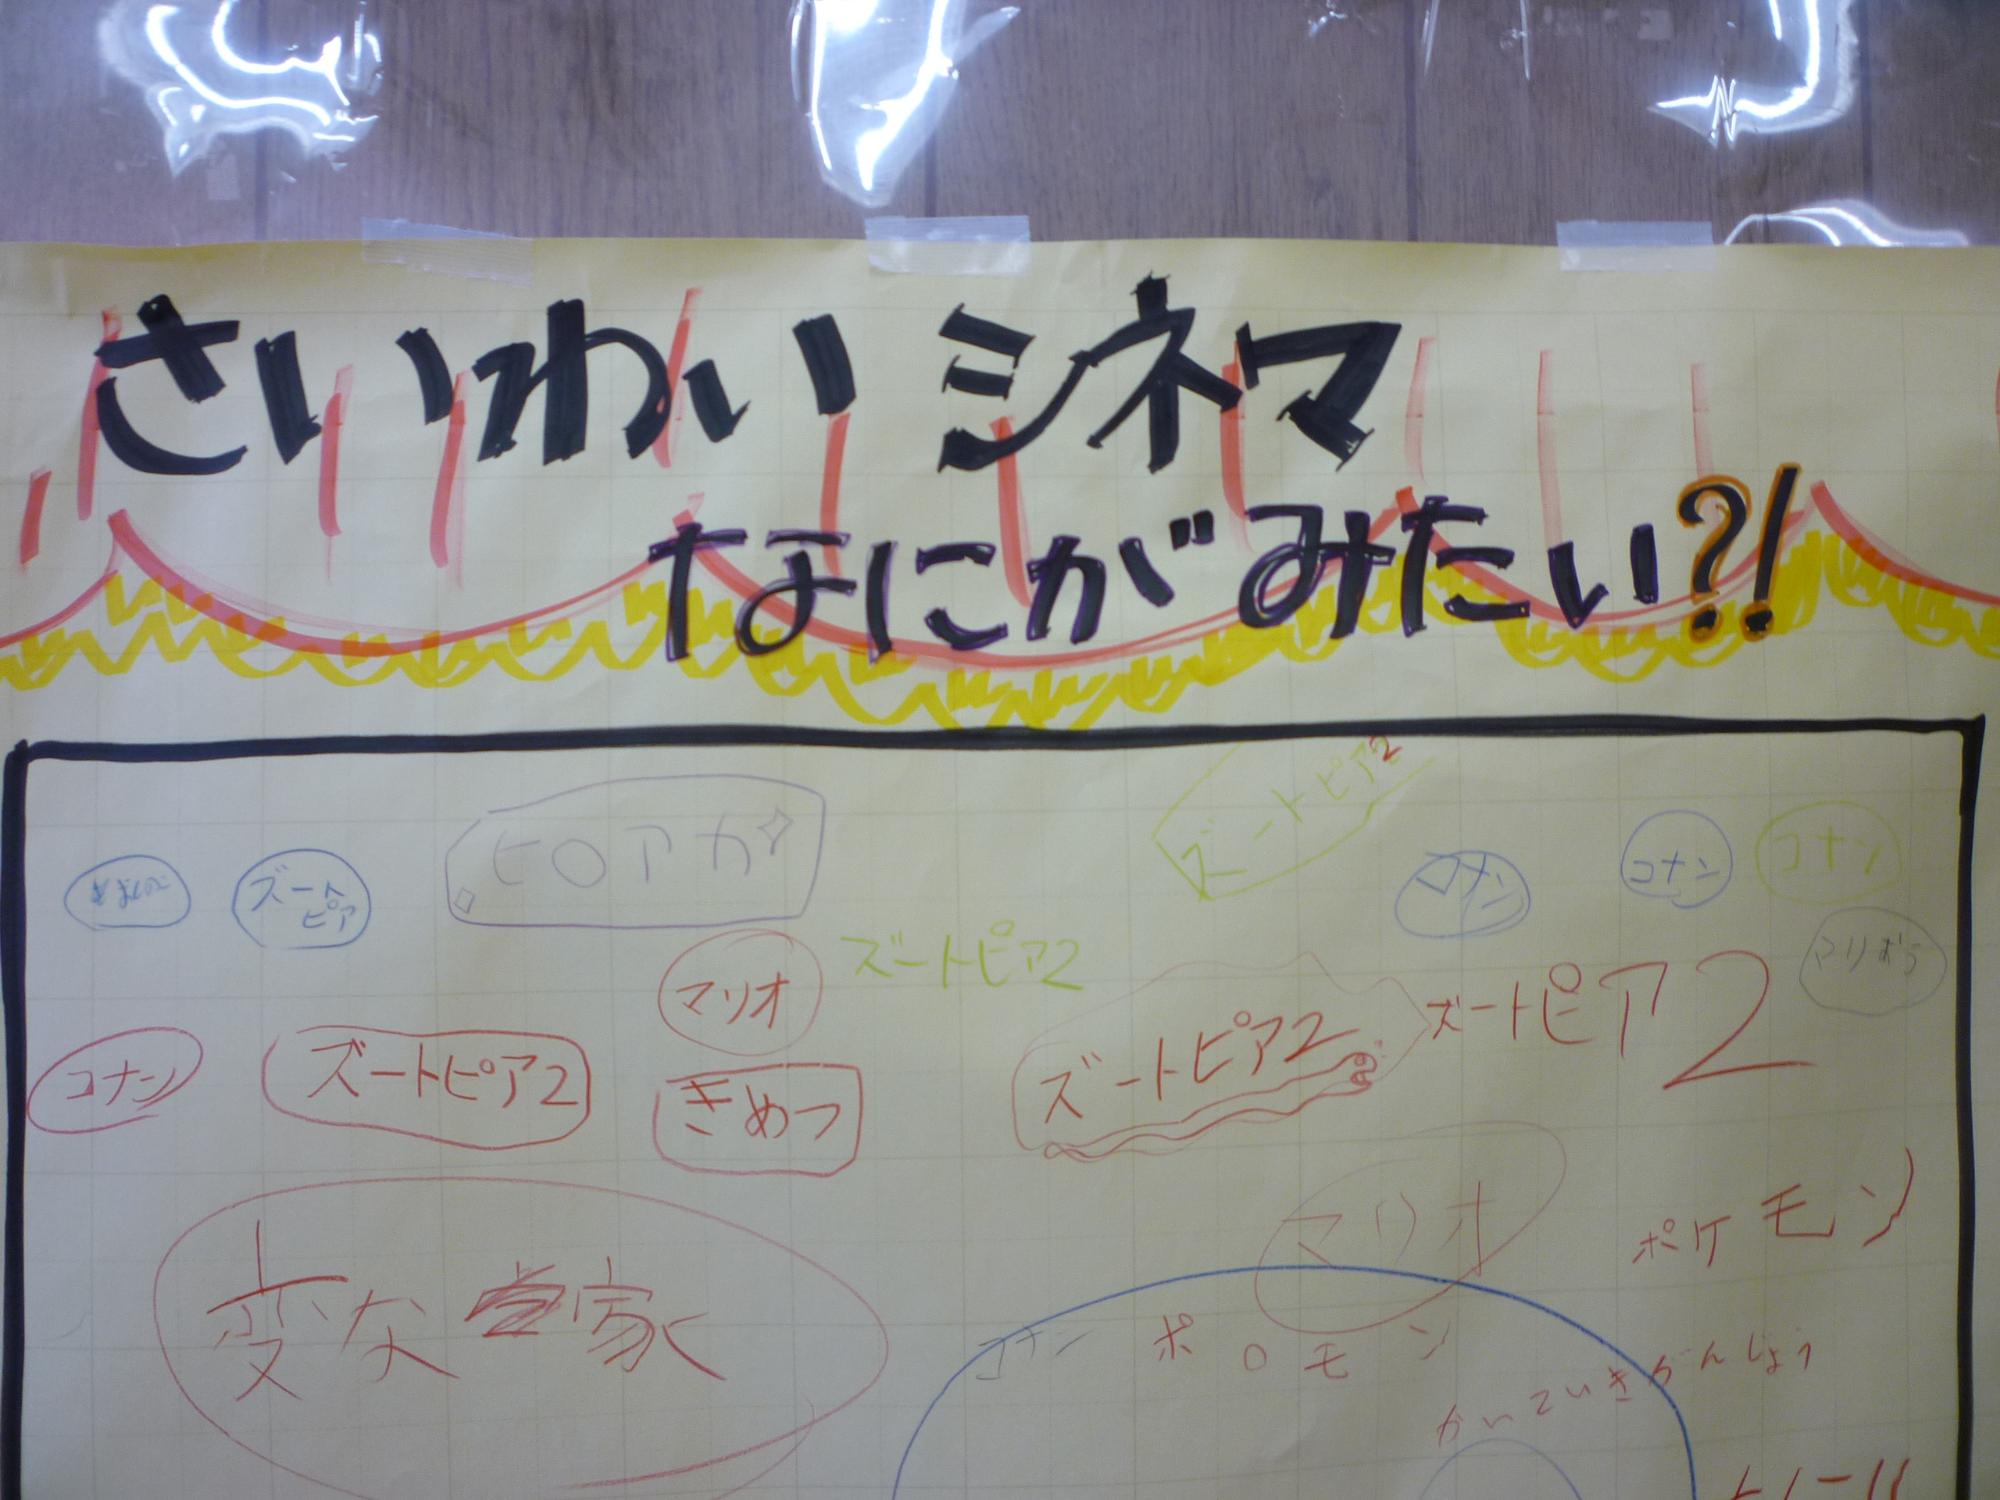 さいわいシネマ
なにがみたい?!
ズートピア2
ヒロアカ
ズートピア
コナン
コナン
コナン
ズートピア2
マリオ
ズートピア2
ズートピア2
コナン
ズートピア2
きめつ
マリオ
ポケモン
変な家
コナン
ポロモン